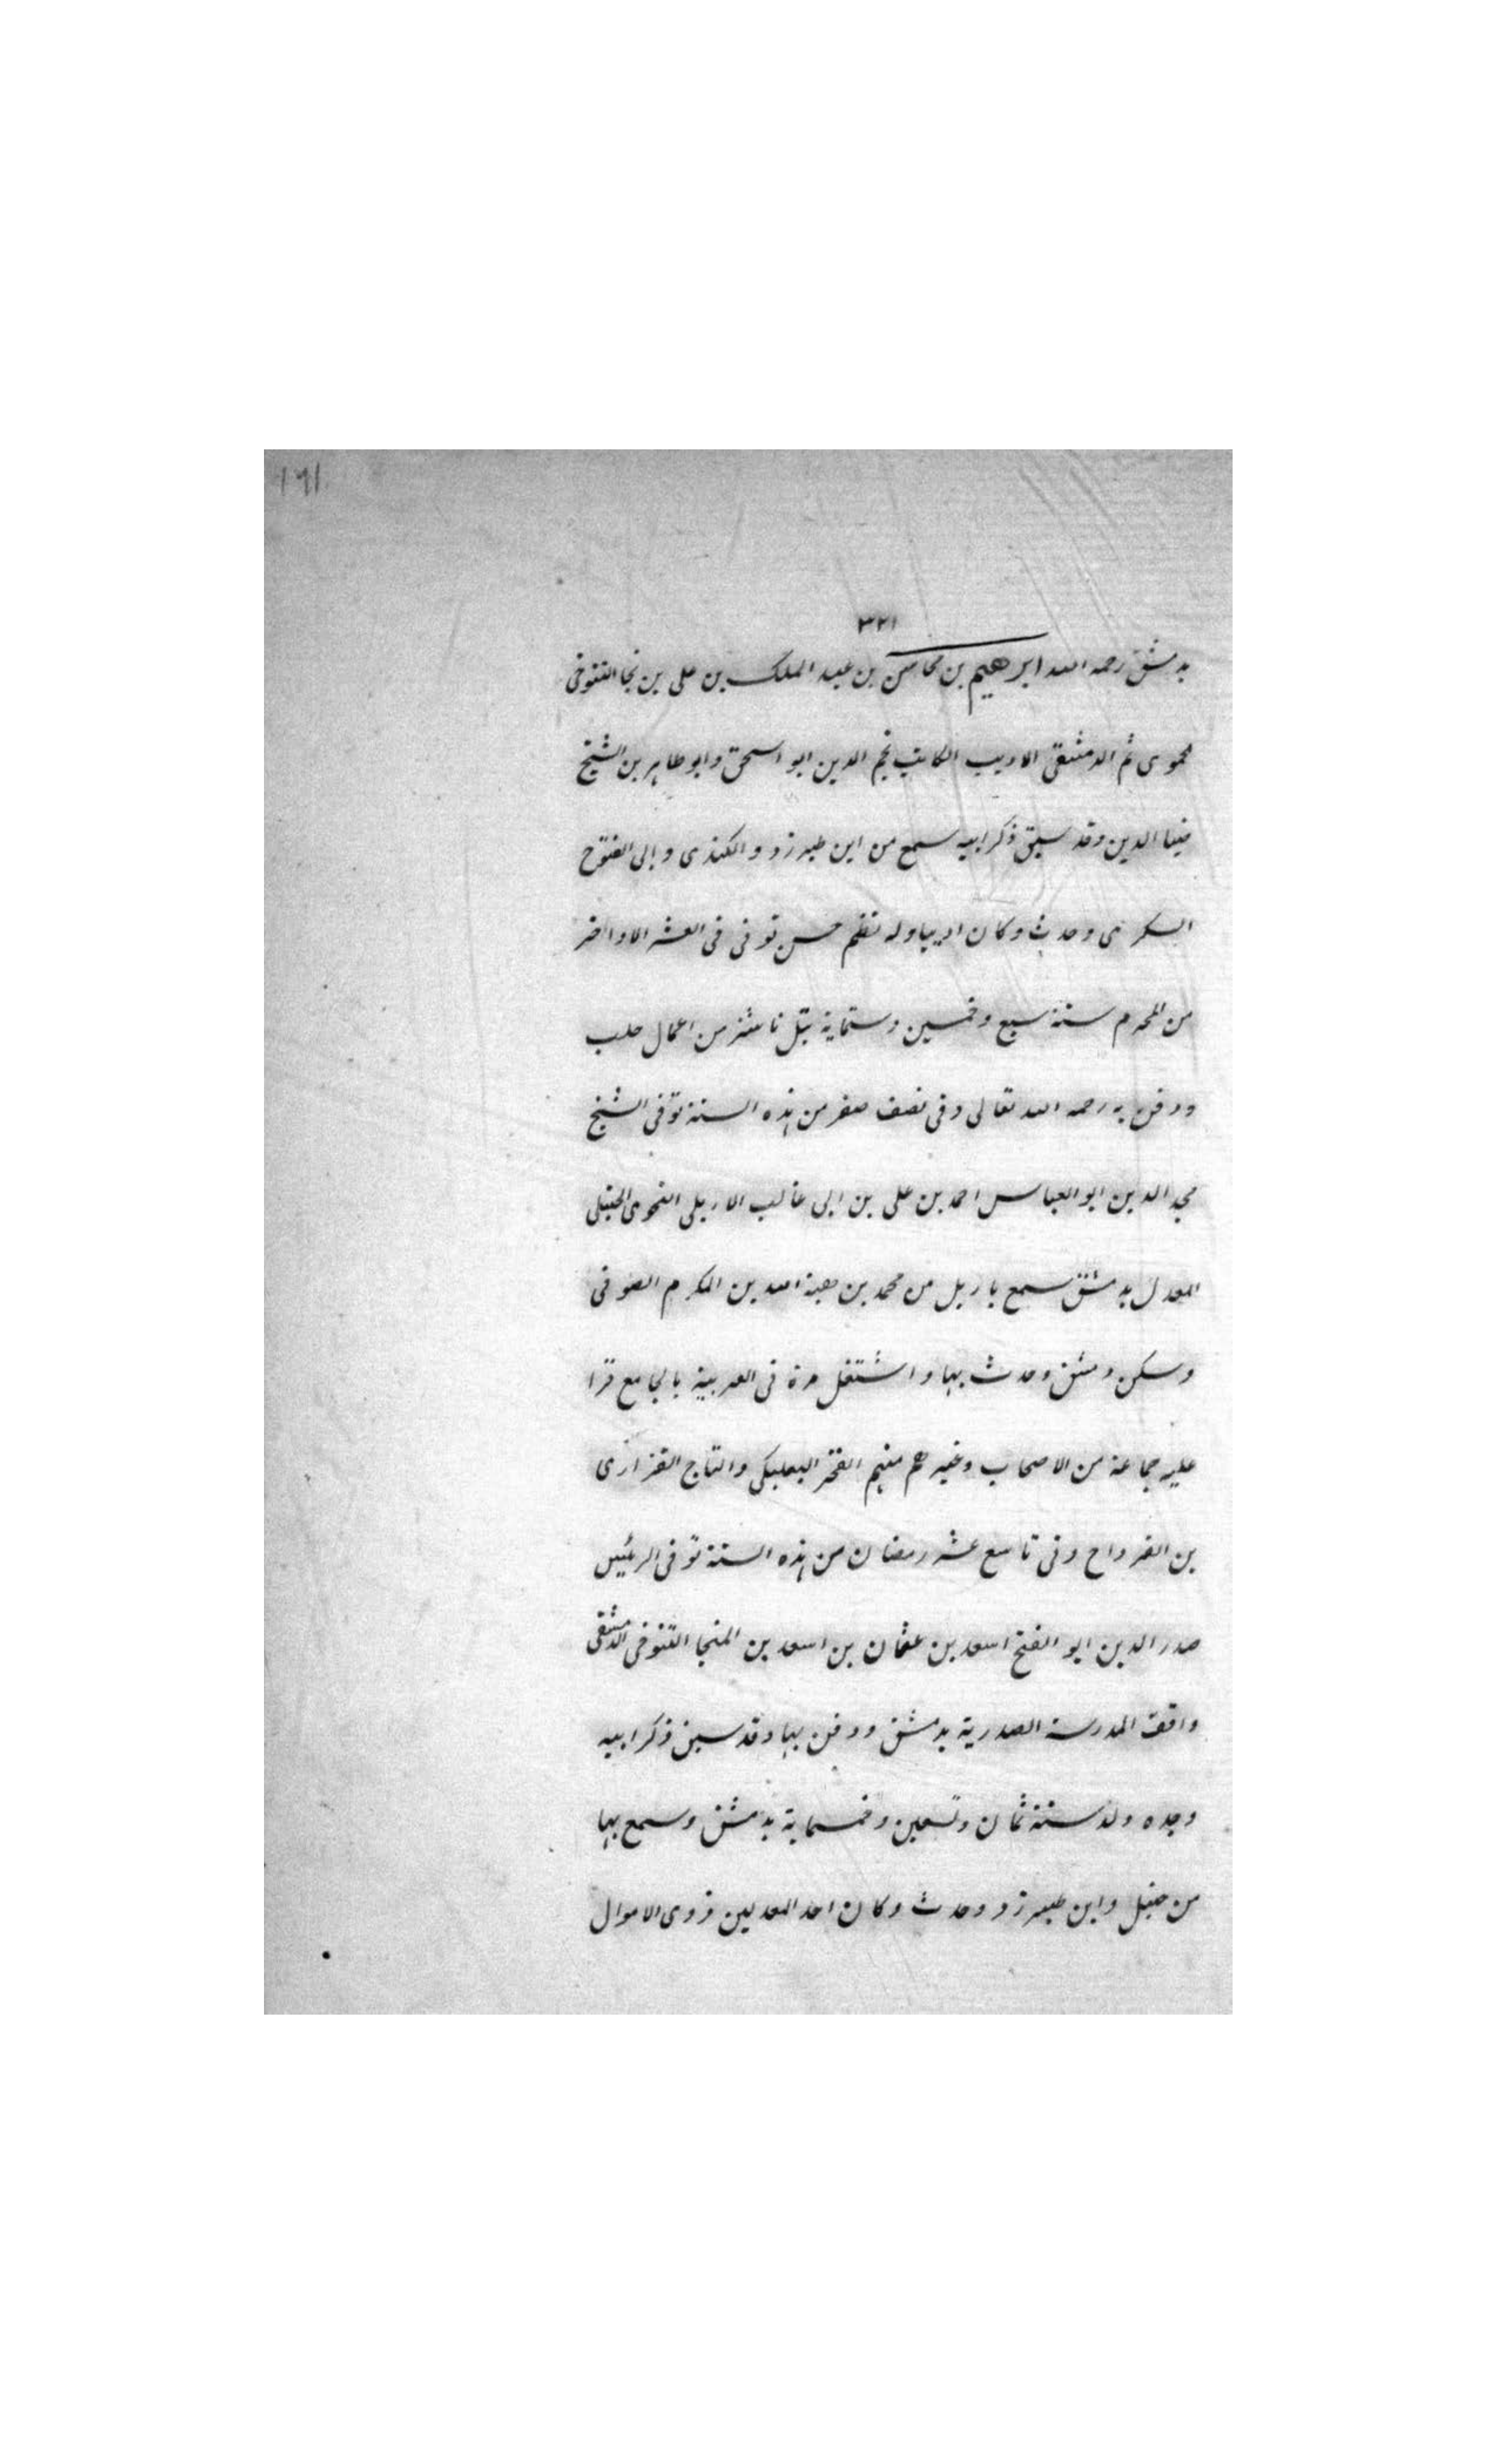 ١٩١
٣٢١
بدمشق رحمه الله ابرهيم بن محاسن بن عبد الملك بن على بن نجا التنوخى
لحموى ثم الدمشقى الاديب الكاتب نجم الدين ابو اسحق وابو طاهر بن الشيخ
ضيا الدين وقد سبق ذكر ابيه سمع من ابن طبرزد والكندى وابى الفتوح
البكرى وحدث وكان اديبا وله نظم حسن توفى فى العشر الاواخر
من المحرم سنة سبع وخمسين وستماية بتل ناشز من اعمال حلب
ودفن به رحمه الله تعالى وفى نصف صفر من هذه السنة توفى الشيخ
مجد الدين ابو العباس احمد بن على بن ابى غالب الاربلى النحوى الحنبلى
المعدل بدمشق سمع باربل من محمد بن هبة الله بن المكرم الصوفى
وسكن دمشق وحدث بها واشتغل مدة فى العربية بالجامع قرا
عليه جماعة من الاصحاب وغيرهم منهم الفخر البعلبكى والتاج الفزارى
بن الفرواح وفى تاسع عشر رمضان من هذه السنة توفى الرئيس
صدر الدين ابو الفتح اسعد بن عثمان بن اسعد بن المنجا التنوخى الدمشقى
واقف المدرسة الصدرية بدمشق ودفن بها وقد سبق ذكر ابيه
وجده ولد سنة ثمان وتسعين وخمسماية بدمشق وسمع بها
من حنبل وابن طبرزد وحدث وكان احد المعدلين ذوى الاموال